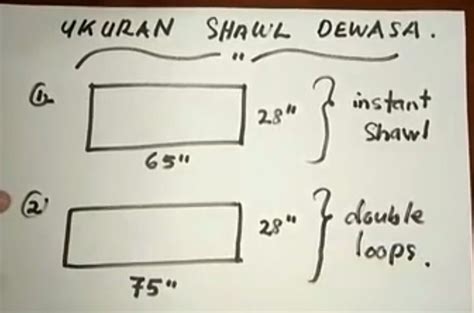 UKURAN SHAWL DEWASA.
"
1. 28" instant
Shawl
65"
2. 28" double
loops.
75"